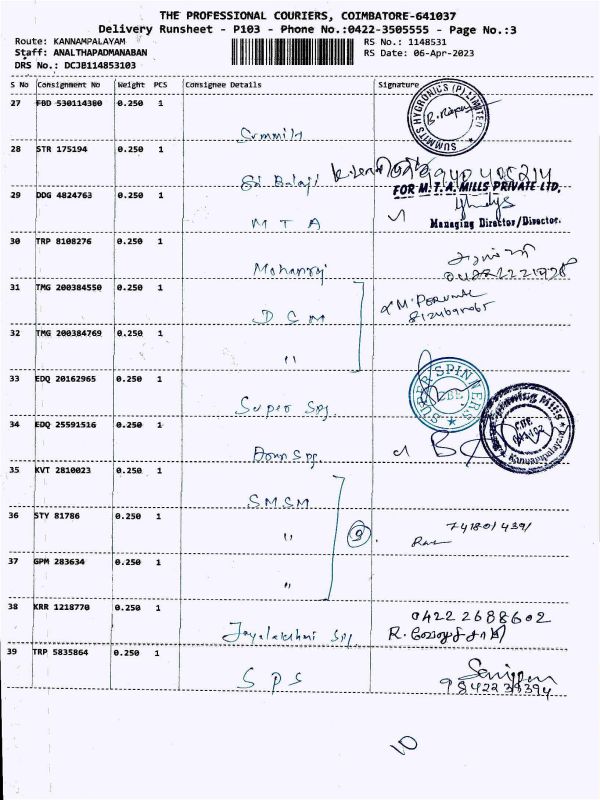 THE PROFESSIONAL COURIERS, COIMBATORE-641037
Delivery Runsheet - P103 - Phone No.:0422-3505555 - Page No.:3
Route: KANNAMPALAYAM RS No.: 1148531
Staff: ANALTHAPADMANABAN RS Date: 06-Apr-2023
DRS No.: DCJB114853103
S No Consignment No Weight PCS Consignee Details Signature
27 FBD 530114380 0.250 1
SUMMITS HYGRONICS (P) LIMITED
28 STR 175194 0.250 1
Sri Balaji
29 DDG 4824763 0.250 1
FOR M.T.A. MILLS PRIVATE LTD,
M T A
Managing Director/Director.
30 TRP 8108276 0.250 1
Mohanraj
31 TMG 200384550 0.250 1
D C M
32 TMG 200384769 0.250 1
"
33 EDQ 20162965 0.250 1
SUPER SPINNERS
CBE
Super Spg
34 EDQ 25591516 0.250 1
35 KVT 2810023 0.250 1
SMSM
36 STY 81786 0.250 1
"
9
37 GPM 283634 0.250 1
"
38 KRR 1218770 0.250 1
0422 2688602
Jayalakshmi Spg
39 TRP 5835864 0.250 1
S P S
10